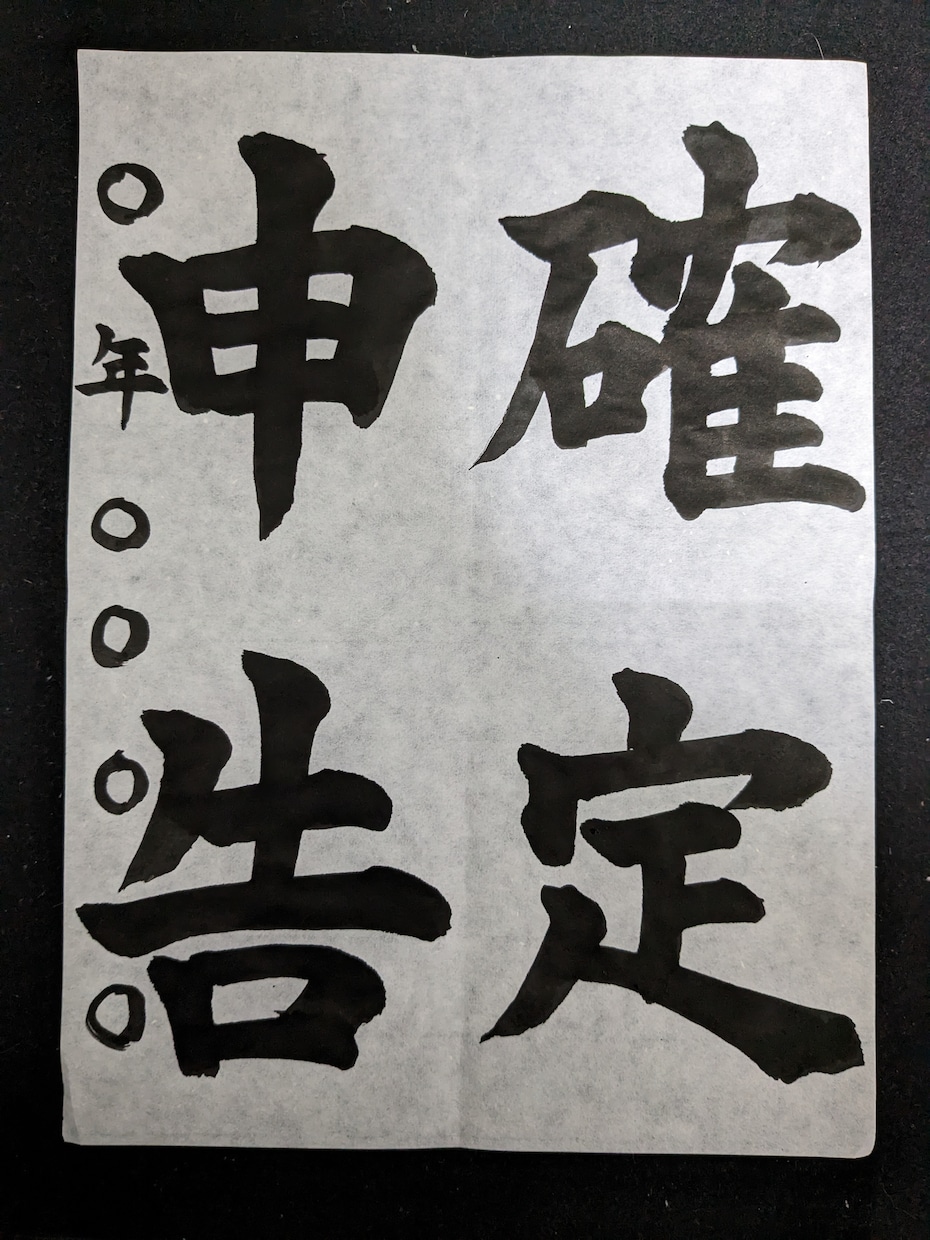 確定
申告
〇年〇〇〇〇